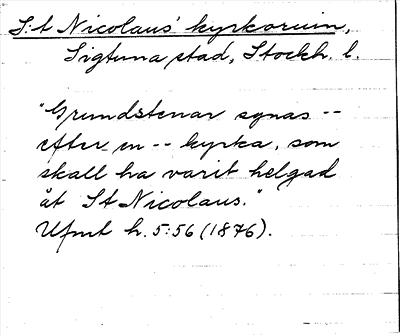 S:t Nicolaus' kyrkoruin,
Sigtuna stad, Stockh. l.
"Grundstenar synas --
efter en -- kyrka, som
skall ha varit helgad
åt St Nicolaus."
Ufmt h. 5:56 (1876).